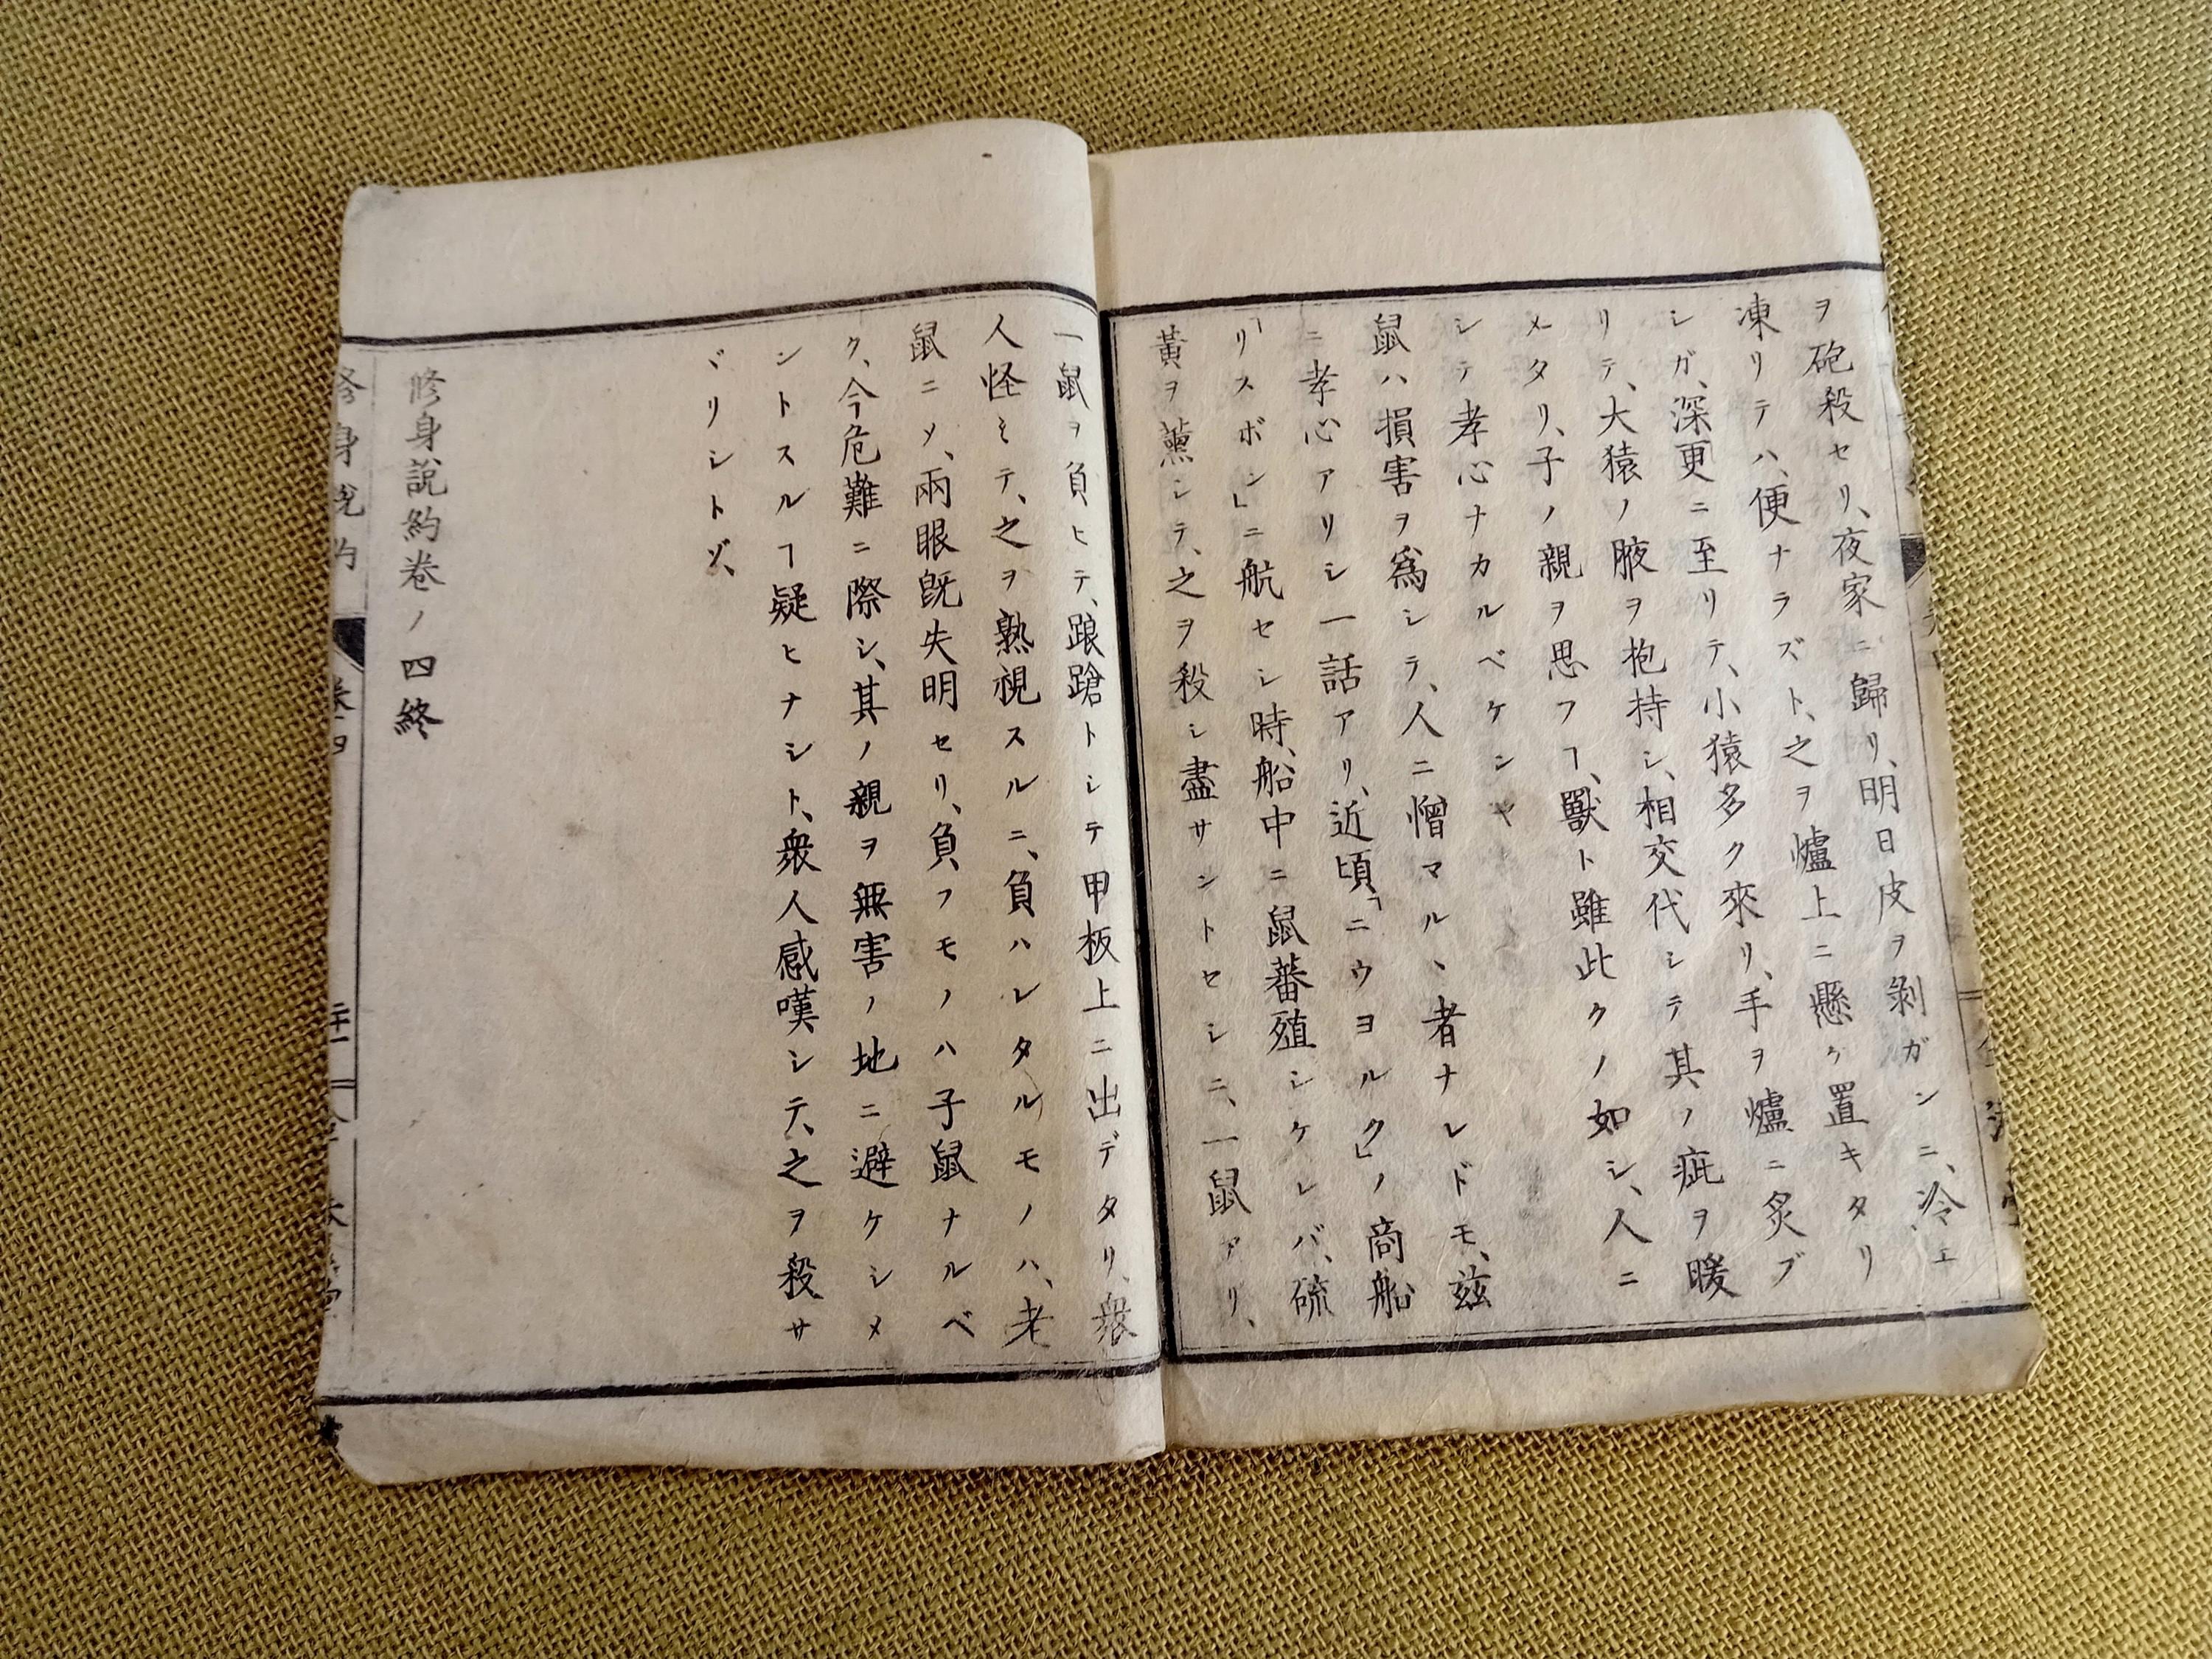 ヲ砲殺セリ、夜家ニ歸リ、明日皮ヲ剝ガンニ、冷エ
凍リテハ、便ナラズト、之ヲ爐上ニ懸ケ置キタリ
シガ、深更ニ至リテ、小猿多ク來リ、手ヲ爐ニ炙ブ
リテ、大猿ノ腋ヲ抱持シ、相交代シテ其ノ疵ヲ暖
メタリ、子ノ親ヲ思フヿ、獸ト雖此クノ如シ、人ニ
シテ孝心ナカルベケンヤ
鼠ハ損害ヲ爲シテ、人ニ憎マルヽ者ナレドモ、玆
ニ孝心アリシ一話アリ、近頃「ニウヨルク」ノ商船
「リスボン」ニ航セシ時、船中ニ鼠蕃殖シケレバ、硫
黃ヲ薰シテ、之ヲ殺シ盡サントセシニ、一鼠アリ、
一鼠ヲ負ヒテ、踉蹌トシテ甲板上ニ出デタリ、衆
人怪ミテ、之ヲ熟視スルニ、負ハレタルモノハ、老
鼠ニメ、兩眼旣失明セリ、負フモノハ子鼠ナルベ
ク、今危難ニ際シ、其ノ親ヲ無害ノ地ニ避ケシメ
ントスルヿ疑ヒナシト、衆人感嘆シテ、之ヲ殺サ
ヾリシトゾ、
修身說約卷ノ四終
修身說約 卷四